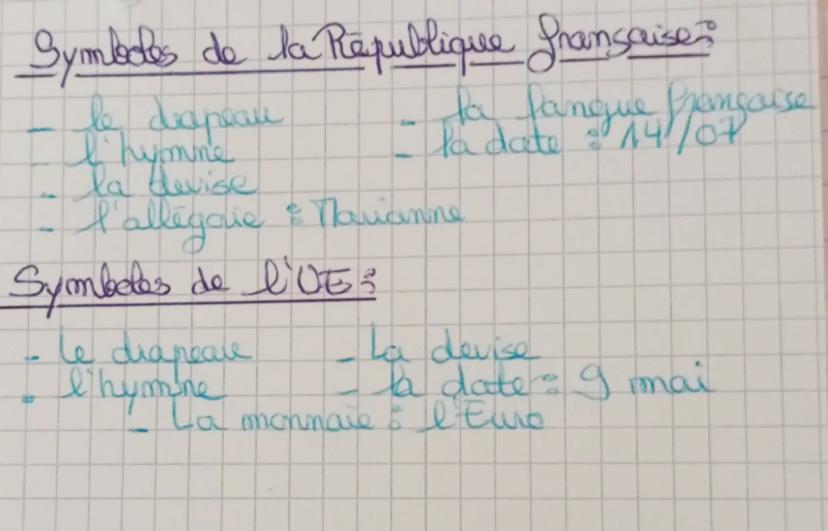 Symboles de la République française :
- le drapeau - la langue française
- l'hymne - la date : 14/07
- la devise
- l'allégorie : Marianne
Symboles de l'UE :
- le drapeau - La devise
- l'hymne - la date : 9 mai
- La monnaie : l'Euro